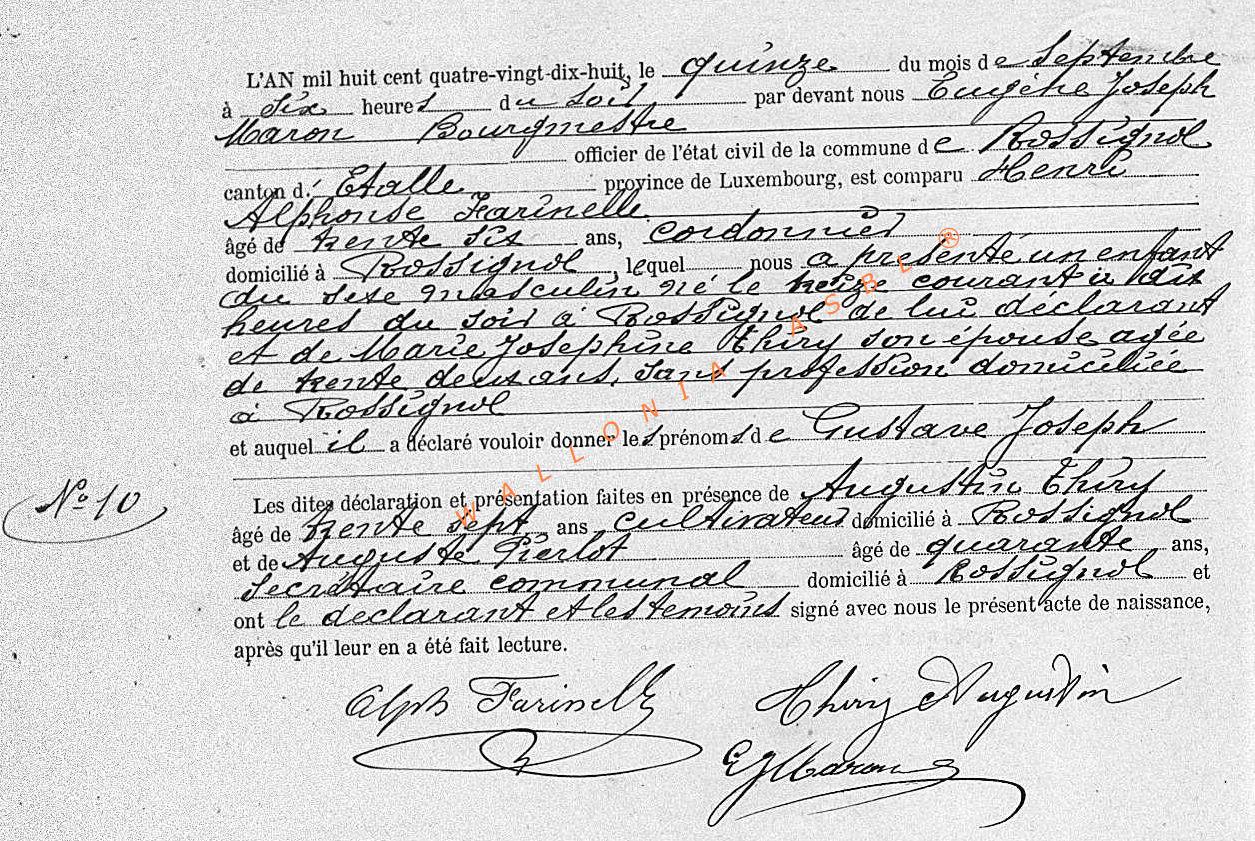 L'AN mil huit cent quatre-vingt-dix-huit, le quinze du mois de Septembre
à six heures du soir par devant nous Eugène Joseph
Maron Bourgmestre
officier de l'état civil de la commune de Rossignol
canton d'Etalle province de Luxembourg, est comparu Henri
Alphonse Farinelle
âgé de trente six ans, cordonnier
domicilié à Rossignol, lequel nous a présenté un enfant
du sexe masculin né le treize courant à dix
heures du soir à Rossignol de lui déclarant
et de Marie Josephine Thiry son épouse agée
de trente deux ans, sans profession domiciliée
à Rossignol
et auquel il a déclaré vouloir donner les prénoms de Gustave Joseph
Les dites déclaration et présentation faites en présence de Augustin Thiry
N° 10
âgé de trente sept ans, cultivateur domicilié à Rossignol
et de Auguste Pierlot âgé de quarante ans,
secrétaire communal domicilié à Rossignol et
ont le déclarant et les temoins signé avec nous le présent acte de naissance,
après qu'il leur en a été fait lecture.
Alph Farinelle Thiry Augustin
EJMaron
WALLONIA ASBL ®